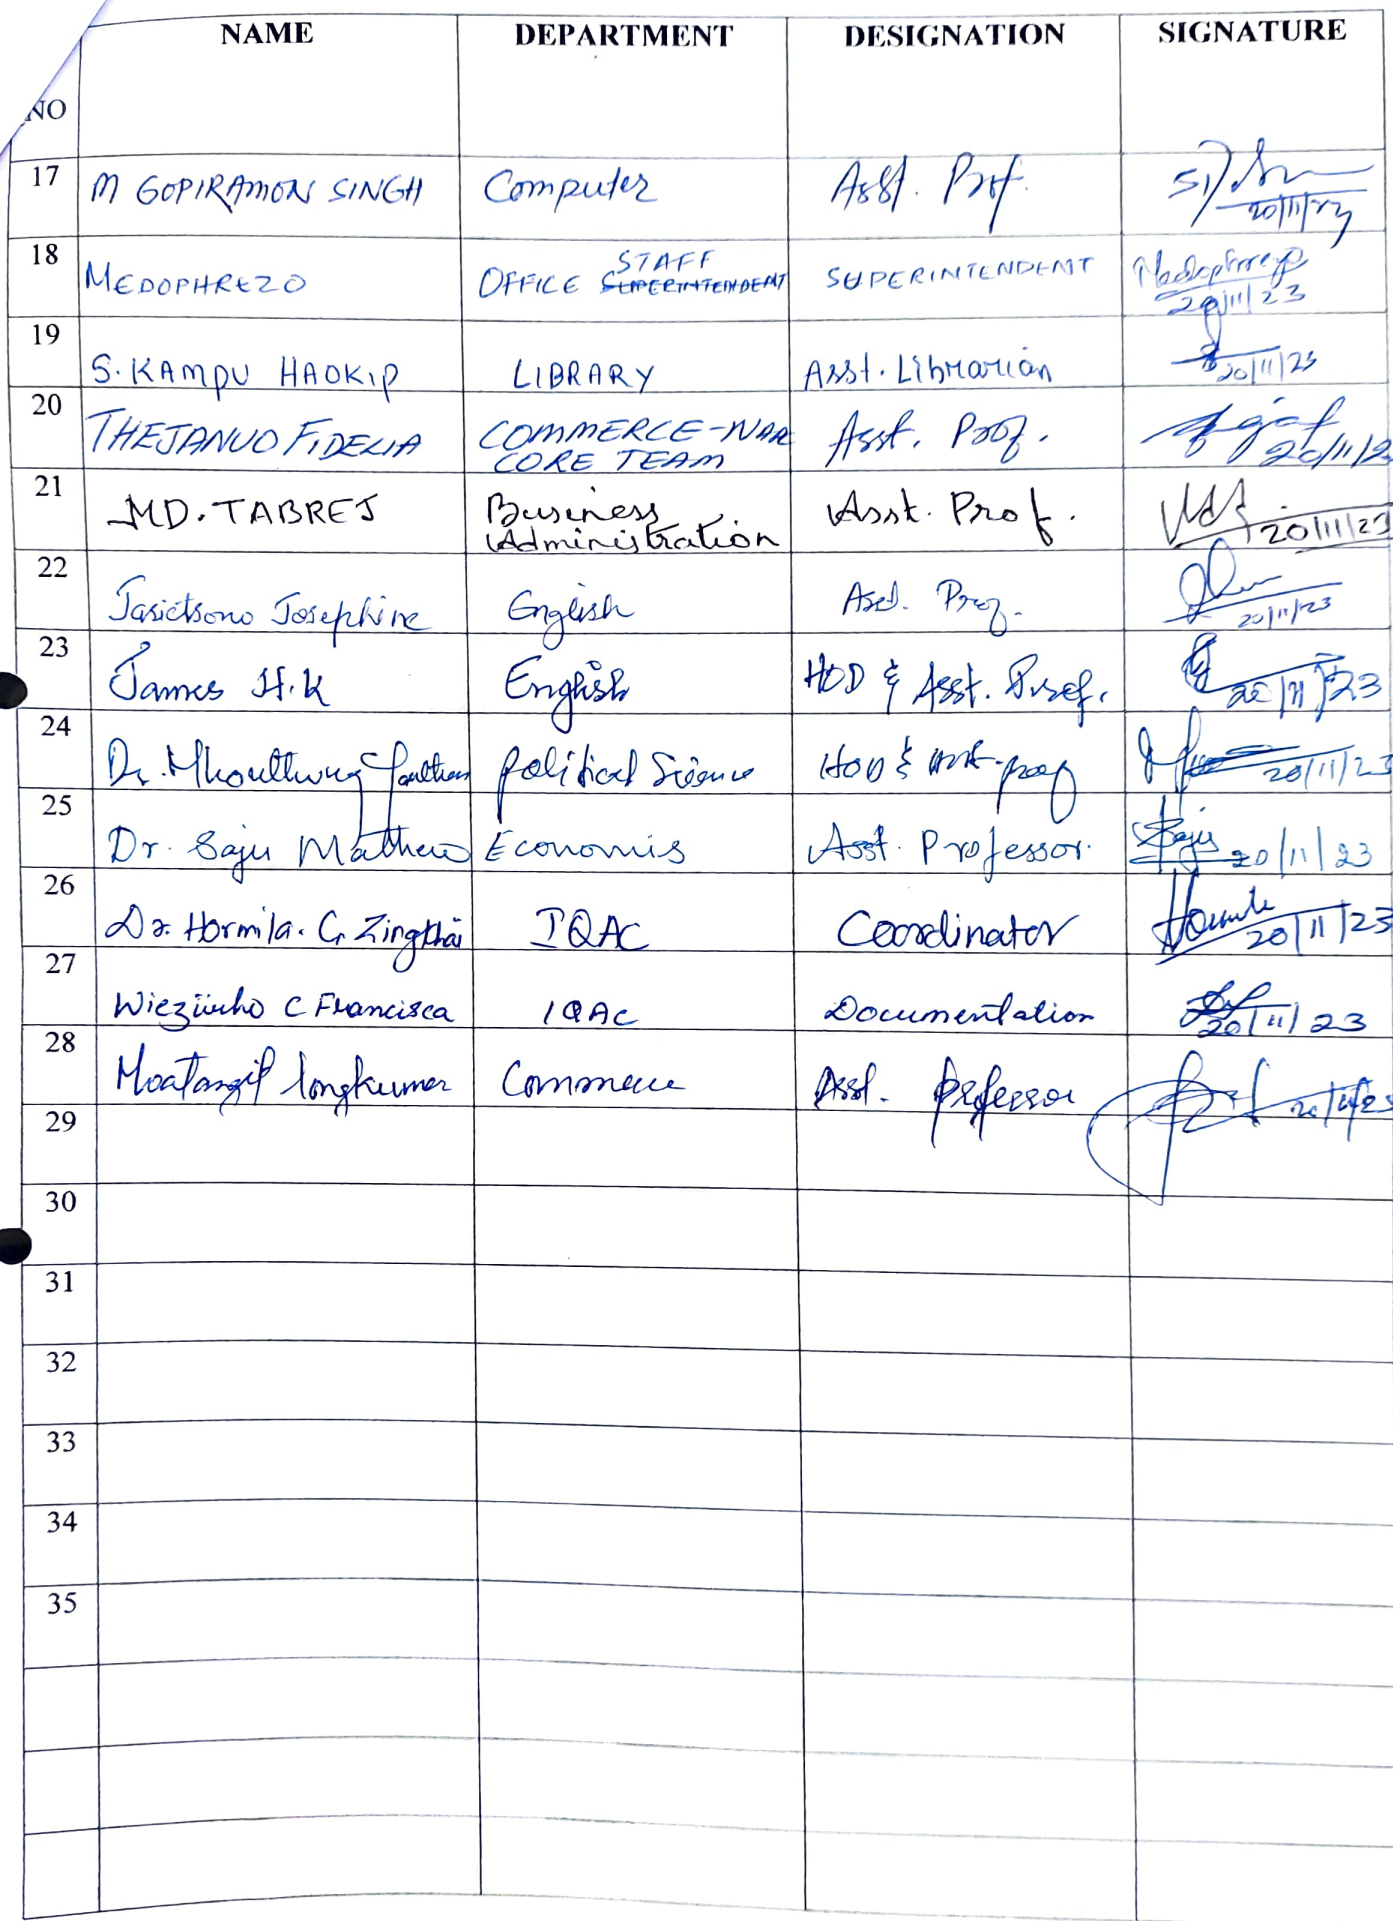 NO NAME DEPARTMENT DESIGNATION SIGNATURE
17 M GOPIRAMON SINGH Computer Asst. Prof. 20/11/23
18 MEDOPHREZO OFFICE STAFF SUPERINTENDENT SUPERINTENDENT 20/11/23
19 S. KAMPU HAOKIP LIBRARY Asst. Librarian 20/11/23
20 THEJANUO FIDELIA COMMERCE-NAR Asst. Prof. 20/11/2
CORE TEAM
21 MD. TABREJ Business Asst. Prof. 20/11/23
Administration
22 Josephine English Asst. Prof. 20/11/23
23 James H.K English HOD & Asst. Prof. 20/11/23
24 Dr. Political Science HOD & Asst. prof 20/11/23
25 Dr. Saju Mathew Economis Asst. Professor. Saju 20/11/23
26 Dr. Hormila. G. Zingkhai IQAC Coordinator 20/11/23
27 C Francisca IQAC Documentation 20/11/23
28 longkumer Commerce Asst. Professor 20/11/23
29
30
31
32
33
34
35